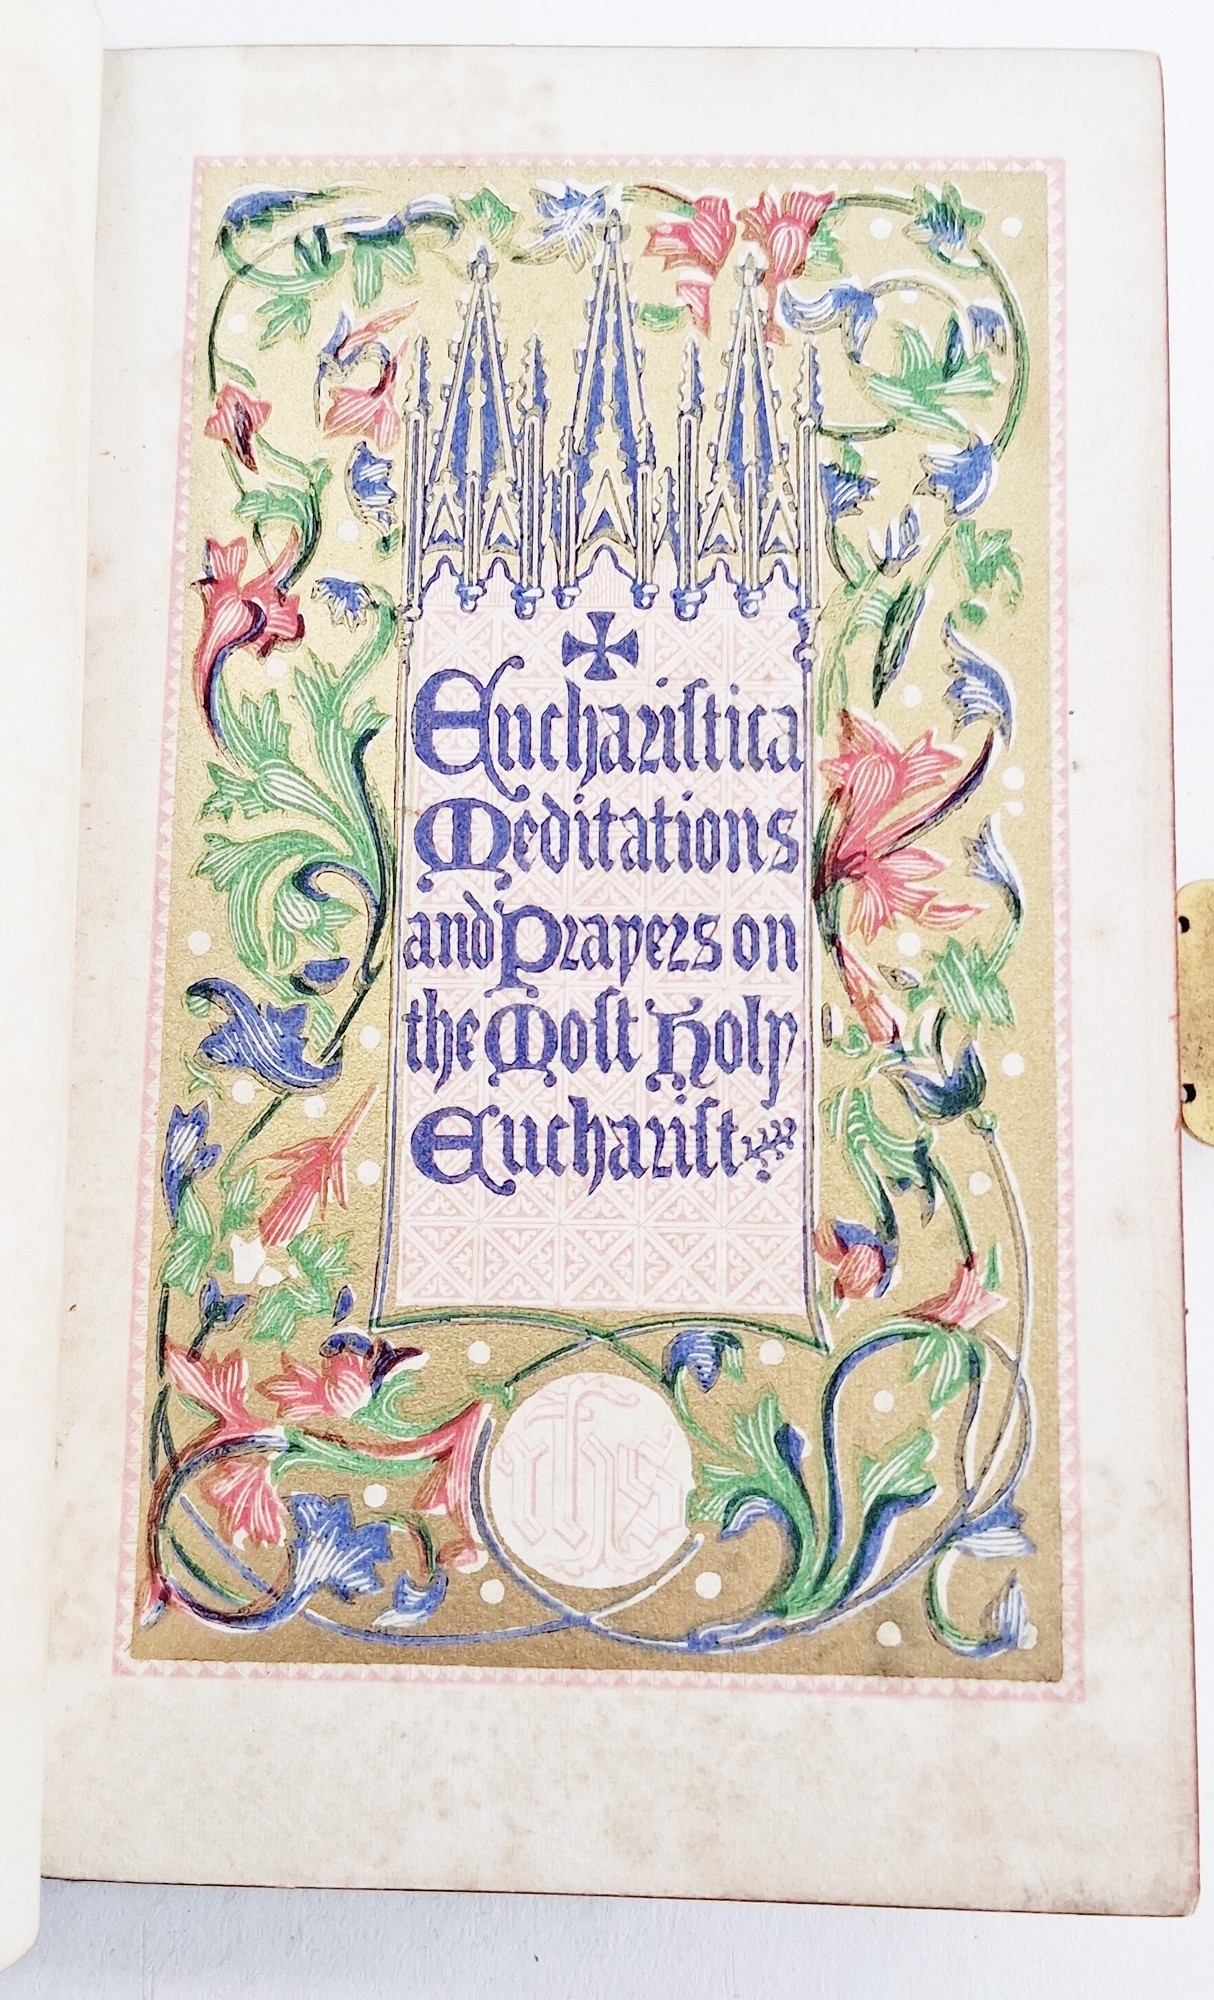 ✠
Euchariſtica
Meditations
and Prayers on
the Moſt Holy
Euchariſt
ihs